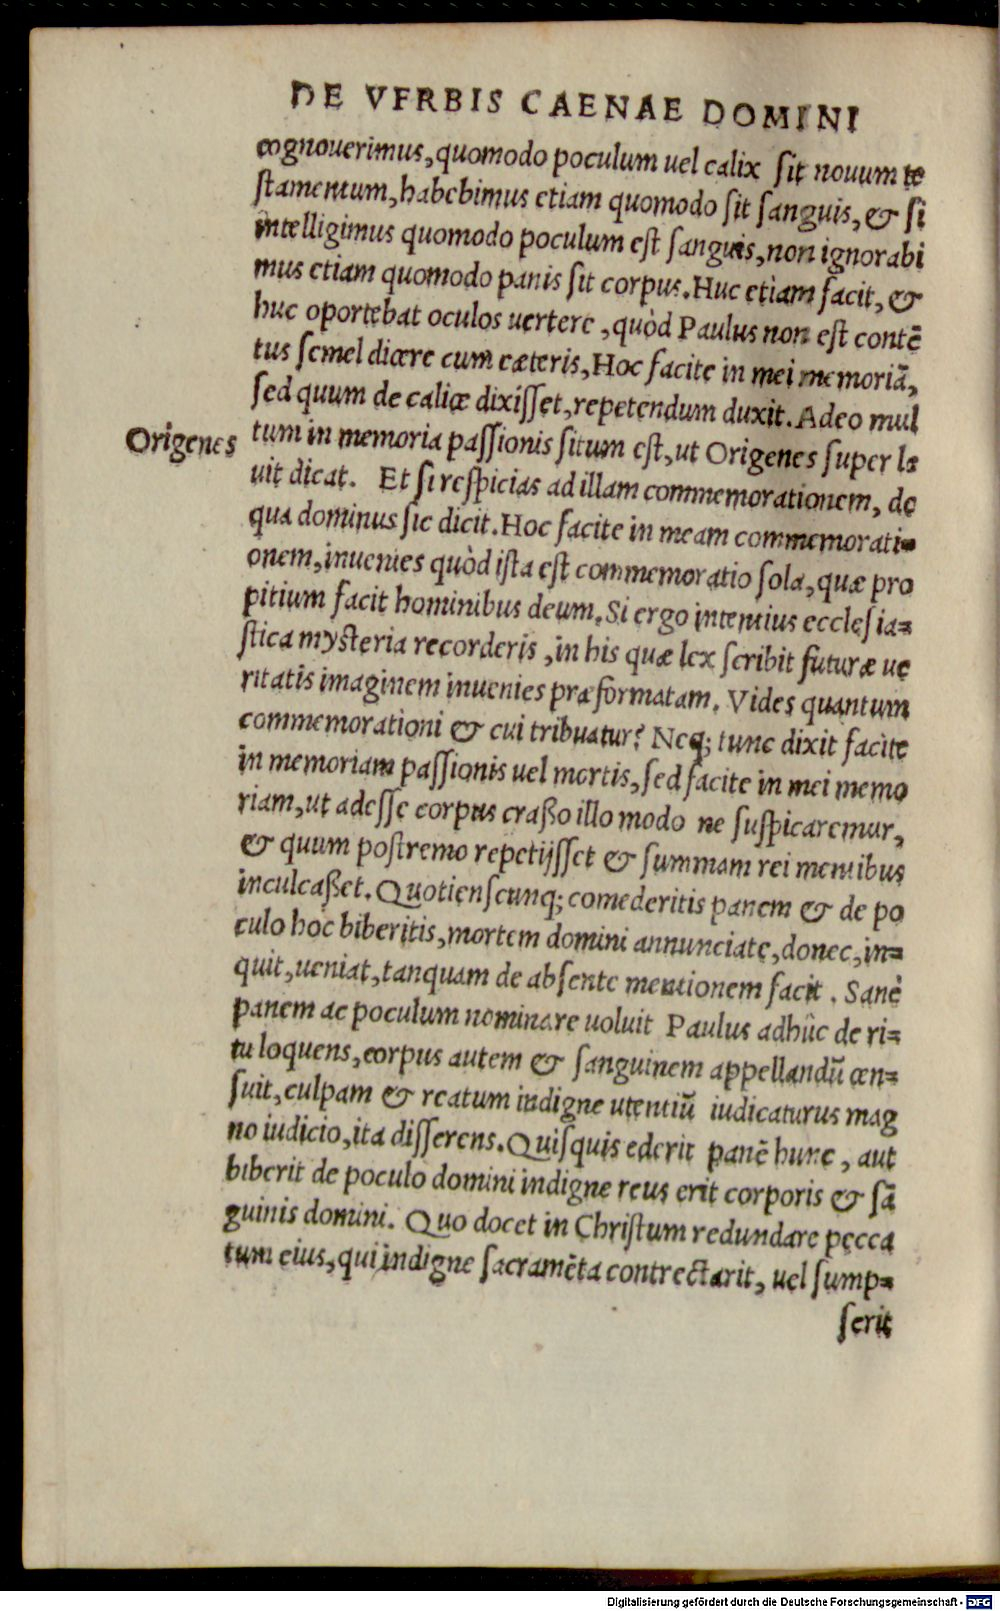 DE VERBIS CAENAE DOMINI
cognouerimus, quomodo poculum uel calix ſit nouum te
ſtamentum, habebimus etiam quomodo ſit ſanguis, & ſi
intelligimus quomodo poculum eſt ſanguis, non ignorabi
mus etiam quomodo panis ſit corpus. Huc etiam facit, &
huc oportebat oculos uertere, quòd Paulus non eſt contē
tus ſemel dicere cum cæteris, Hoc facite in mei memoriā,
ſed quum de calice dixiſſet, repetendum duxit. Adeo mul
Origenes
tum in memoria paſſionis ſitum eſt, ut Origenes ſuper le
uit dicat. Et ſi reſpicias ad illam commemorationem, de
qua dominus ſic dicit. Hoc facite in meam commemorati=
onem, inuenies quòd iſta eſt commemoratio ſola, quæ pro
pitium facit hominibus deum. Si ergo intentius eccleſia=
ſtica myſteria recorderis, in his quæ lex ſcribit futuræ ue
ritatis imaginem inuenies præformatam. Vides quantum
commemorationi & cui tribuatur? Neq; tunc dixit facite
in memoriam paſſionis uel mortis, ſed facite in mei memo
riam, ut adeſſe corpus craßo illo modo ne ſuſpicaremur,
& quum poſtremo repetijſſet & ſummam rei mentibus
inculcaßet. Quotienſcunq; comederitis panem & de po
culo hoc biberitis, mortem domini annunciate, donec, in=
quit, ueniat, tanquam de abſente mentionem facit. Sanè
panem ac poculum nominare uoluit Paulus adhuc de ri=
tu loquens, corpus autem & ſanguinem appellandū cen=
ſuit, culpam & reatum indigne utentiū iudicaturus mag
no iudicio, ita diſſerens. Quiſquis ederit panē hunc, aut
biberit de poculo domini indigne reus erit corporis & ſā
guinis domini. Quo docet in Chriſtum redundare pecca
tum eius, qui indigne ſacramēta contrectarit, uel ſump=
ſerit
Digitalisierung gefördert durch die Deutsche Forschungsgemeinschaft - DFG